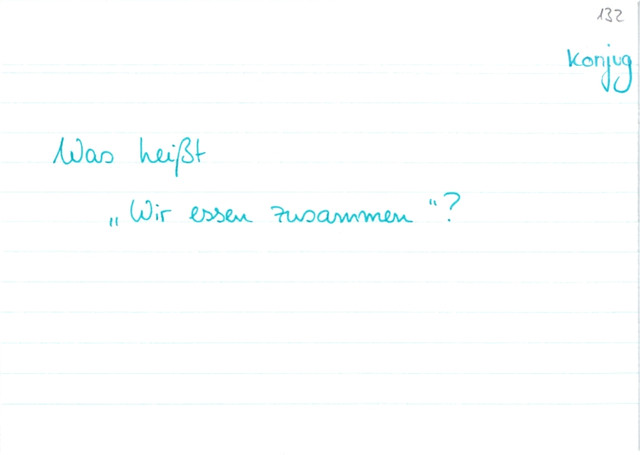 132
Konjug
Was heißt
„Wir essen zusammen“?